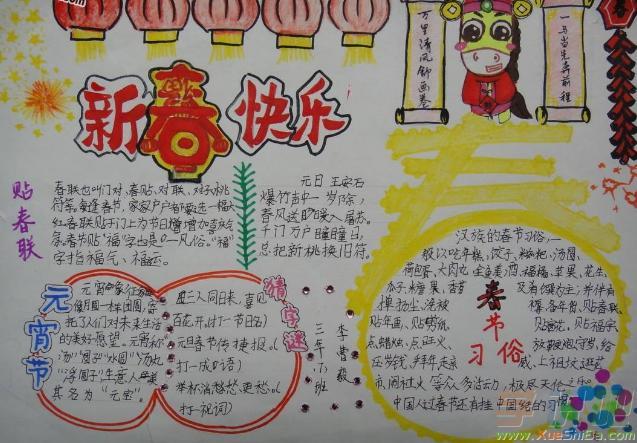 万里清风铺画卷
一马当先奔前程
春
新春快乐
贴春联
春联也叫门对、春贴、对联、对子,桃
符等。每逢春节,家家户户都要选一幅大
红春联贴于门上,为节日增加喜庆气
氛。春节贴“福”字也是一风俗。“福”
字指福气、福运。
元日 王安石
爆竹声中一岁除,
春风送暖入屠苏。
千门万户曈曈日,
总把新桃换旧符。
元宵节
元宵象征
像月圆一样团圆,寄
托了人们对未来生活
的美好愿望。元宵称“
汤”“圆子”“水圆”“汤丸
”“浮圆子”,生意人
其名为“元宝”
猜字谜
三人同日来,喜见
百花开,(打一节日名)
元旦春节传捷报,(
打一成语)
举杯消愁愁更愁。(
打一祝词)
三年(7)班
春
汉族的春节习俗,一
般以吃年糕、饺子、糍粑、汤圆、
荷包蛋、大肉丸、全鱼、美酒、福橘、苹果、花生、
瓜子、糖果、香茗
贴年画、贴剪纸、
贴福字、
点蜡烛、点旺火、
放鞭炮、守岁、给
压岁钱、拜年、走亲
戚、上祖坟、逛花
市、闹社火等众多活动,极尽天伦之乐。
中国人过春节还有挂中国结的习惯。
春节习俗
www.XueShiBa.com